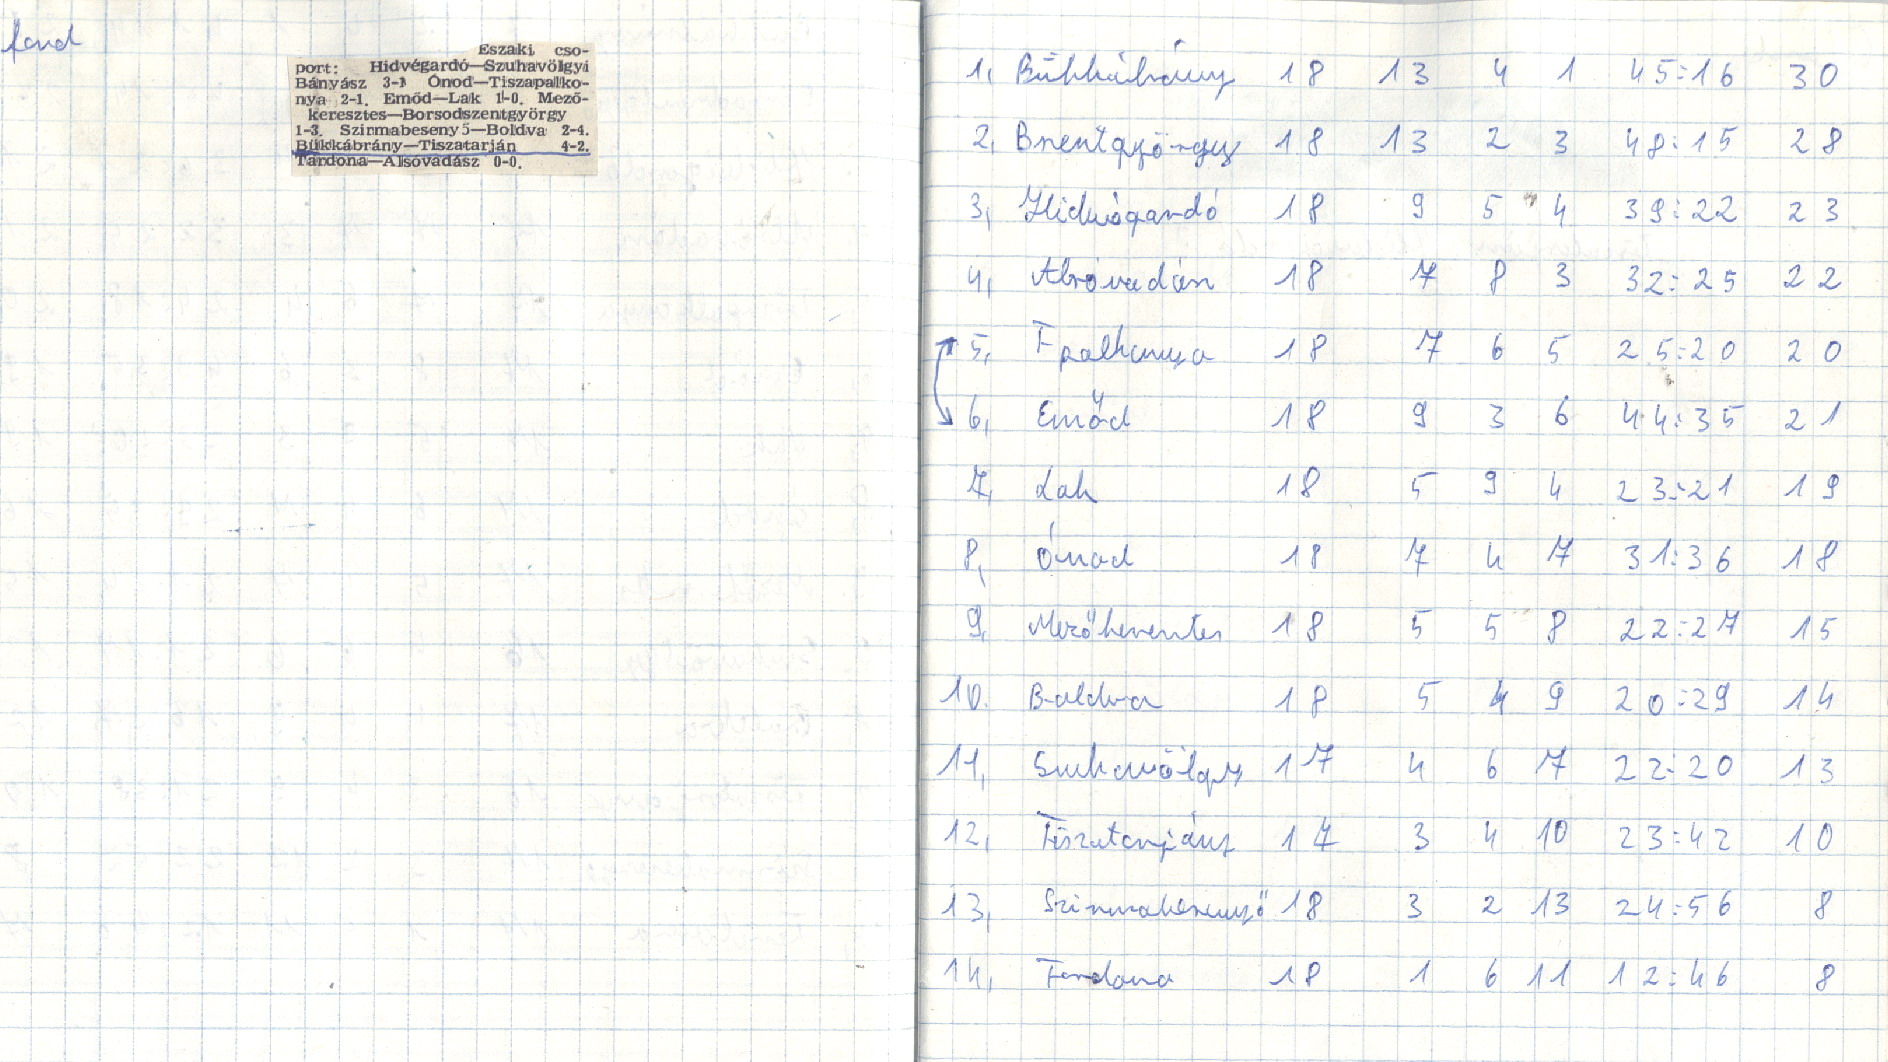 fend
Eszaki cso-
port: Hidvégardó—Szuhavölgyi
Bányász 3-1 Ónod—Tiszapalko-
nya 2-1. Emőd—Lak 1-0. Mező-
keresztes—Borsodszentgyörgy
1-3. Szirmabesenyő—Boldva 2-4.
Bükkábrány—Tiszatarján 4-2.
Tardona—Alsóvadász 0-0.
1, Bükkábrány 18 13 4 1 45:16 30
2, Bszentgyörgy 18 13 2 3 48:15 28
3, Hidvégardó 18 9 5 4 39:22 23
4, Alsóvadász 18 7 8 3 32:25 22
5, Tpalkonya 18 7 6 5 25:20 20
6, Emőd 18 9 3 6 44:35 21
7, Lak 18 5 9 4 23:21 19
8, Ónod 18 7 4 7 31:36 18
9, Mezőkeresztes 18 5 5 8 22:27 15
10. Boldva 18 5 4 9 20:29 14
11, Szuhavölgy 17 4 6 7 22:20 13
12, Tiszatarján 17 3 4 10 23:42 10
13, Szirmabesenyő 18 3 2 13 24:56 8
14, Tardona 18 1 6 11 12:46 8